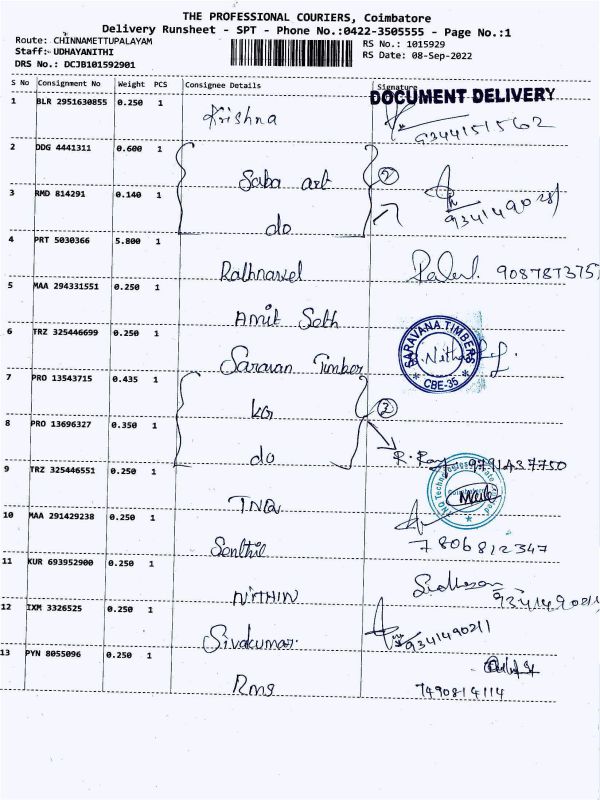 THE PROFESSIONAL COURIERS, Coimbatore
Delivery Runsheet - SPT - Phone No.:0422-3505555 - Page No.:1
Route: CHINNAMETTUPALAYAM
Staff: UDHAYANITHI
DRS No.: DCJB101592901
RS No.: 1015929
RS Date: 08-Sep-2022
S No Consignment No Weight PCS Consignee Details Signature
DOCUMENT DELIVERY
1 BLR 2951630855 0.250 1 Krishna 9344151562
2 DDG 4441311 0.600 1 Saba art 2
3 RMD 814291 0.140 1 do
4 PRT 5030366 5.800 1 Rathnavel 908787375
5 MAA 294331551 0.250 1 Amit Seth
SARAVANA TIMBER
CBE-35
6 TRZ 325446699 0.250 1 Saravan Timber
7 PRO 13543715 0.435 1 KG 2
8 PRO 13696327 0.350 1 do 9791437750
9 TRZ 325446551 0.250 1 TNQ
TNQ Technologies Private
10 MAA 291429238 0.250 1 Senthil 7806812347
11 KUR 693952900 0.250 1 NITHIN
12 IXM 3326525 0.250 1 Sivakumar 9341490211
13 PYN 8055096 0.250 1 Rms 7490814114